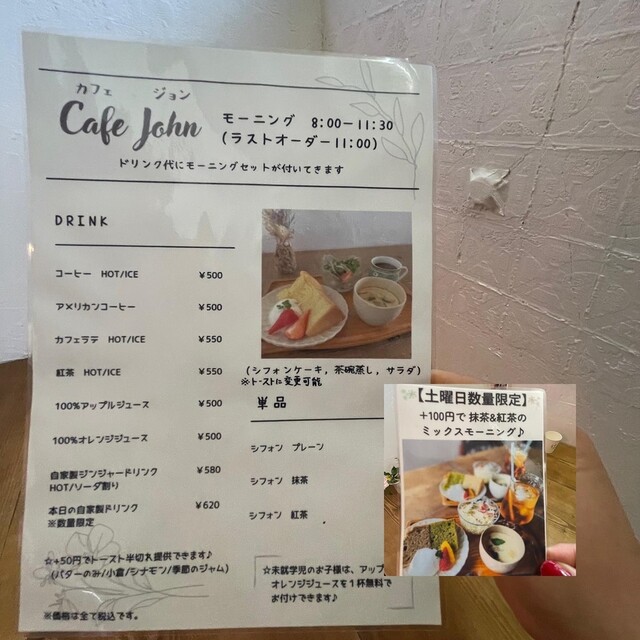 カフェ ジョン
Cafe John
モーニング 8:00ー11:30
(ラストオーダー11:00)
ドリンク代にモーニングセットが付いてきます
DRINK
コーヒー HOT/ICE ¥500
アメリカンコーヒー ¥500
カフェラテ HOT/ICE ¥550
紅茶 HOT/ICE ¥550
100%アップルジュース ¥500
100%オレンジジュース ¥500
自家製ジンジャードリンク ¥580
HOT/ソーダ割り
本日の自家製ドリンク ¥620
※数量限定
☆+50円でトースト半切れ提供できます♪
(バターのみ/小倉/シナモン/季節のジャム)
※価格は全て税込です。
(シフォンケーキ, 茶碗蒸し, サラダ)
※トーストに変更可能
単品
シフォン プレーン
シフォン 抹茶
シフォン 紅茶
☆未就学児のお子様は、アップ
オレンジジュースを1杯無料で
お付けできます♪
【土曜日数量限定】
+100円で 抹茶&紅茶の
ミックスモーニング♪